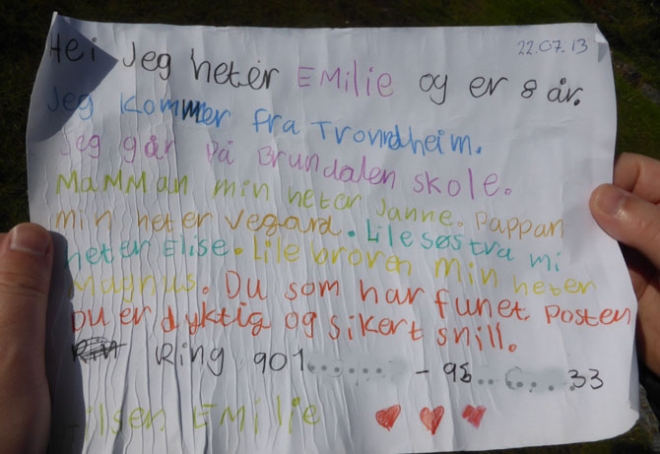 22.07.13
Hei Jeg heter EMilie og er 8 år.
Jeg kommer fra Trondheim.
Jeg går på Brundalen skole.
MaMMan min heter Janne. Pappan
min heter Vegard. Lilesøstra mi
heter Elise. Lile broren min heter
Magnus. Du som har funet Posten
Du er dyktig og sikert snill.
Ring 901 - 98 33
Hilsen EMilie